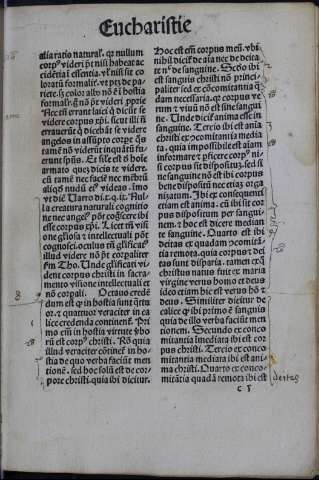 Eucharistie
alia ratio natural'. qꝛ nullum
corpꝰ videri pt nisi habeat ac
cidētia ī essentia. vł nisi sit co
loratū formalit̄. vt ptꝫ de pa
riete. hꝫ color albo nō ē ī hostia
formalr̄. ḡ nō pt̄ videri pprie
Nec em̄ errant laici q̄ dicūt se
videre corpus xp̄i. sicut illi nō
errauerūt q̄ dicebāt se videre
angelos in assūpto corpe qꝫ
tamē nō viderūt inquātū fue-
rint spūs. Et sile est ō hoīe
armato quēꝫ dicis te videre.
cū tamē nec facē nec mēbrū
aliqō nudū eiꝰ videas. imo
la creatura naturali cognitio
ne nec angelꝰ pōt cogscere ibi
esse corpꝰ xp̄i. Licet tn̄ visi
one gliosa ⁊ intellectuali pōt
cognosci. oculus tn̄ glificatꝰ
illud videre nō pt corpaliter
fm̄ Tho. Unde glificati vi-
dent corpus christi in sacra-
mento visione intellectuali et
nō corpali. Octauo creдē
dum est qꝫ in hostia sunt q̄tu
or. ⁊ quattuor veraciter in ca
lice credenda continent̄. Pri
mo em̄ in hostia virtute ꝟbo
rū est corpꝰ christi. Rō quia
illud veraciter cōtinet̄ in ho-
stia de quo verba faciūt men
tionē. sed hoc solū est de cor-
pore christi. quia ibi dicitur.
Hoc est em̄ corpus meū. vbi
nihil dicit̄ de aīa nec de deita
te n̄ de sanguine. Scdo ibi
est sanguis christi nō princi-
palit̄ sed ex cōcomitantia q̄
dam necessaria. qꝛ corpus ve
rum ⁊ viuū nō est sine sangui
ne. Unde dicit̄ anima esse in
sanguine. Tercio ibi est aīa
christi ex ꝯcomitantia media
ta. quia impossibile est aīam
informare ⁊ pficere corpꝰ ni-
si corpus sit dispositū. sed si-
ne sanguine nō est ibi corpus
bene dispositū nec etiaꝫ orga
nizatum. Ibi ex consequenti
etiam est anima. cū ibi sit cor
pus dispositum per sangui-
nem. ⁊ hoc est dicere median
te sanguine. Quarto est ibi
deitas ex quadam ꝯcomitā
tia remota. quia corpus ⁊ dei
tas sunt disparia. tamen ex q̄
christus natus fuit ex maria
virgine verus homo et deus
ideo etiam hic est verus hō ⁊
deus. Similiter dicitur de
calice qꝫ ibi primo ē sanguis
quia de illo verba faciūt men
tionem. Secundo ex conco
mitantia īmediata ibi est cor
pus christi. Tercio ex conco
mitantia mediata ibi est ani
ma christi. Quarto ex conco-
mitātia quadā remota ibi est
deitas
c 5